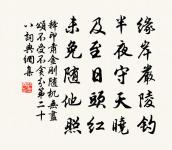 缘岸严陵钓
半夜守天晓
及至日头红
未免随他照
释印肃金刚随机无尽
颂不受不贪分第二十
八词典网集